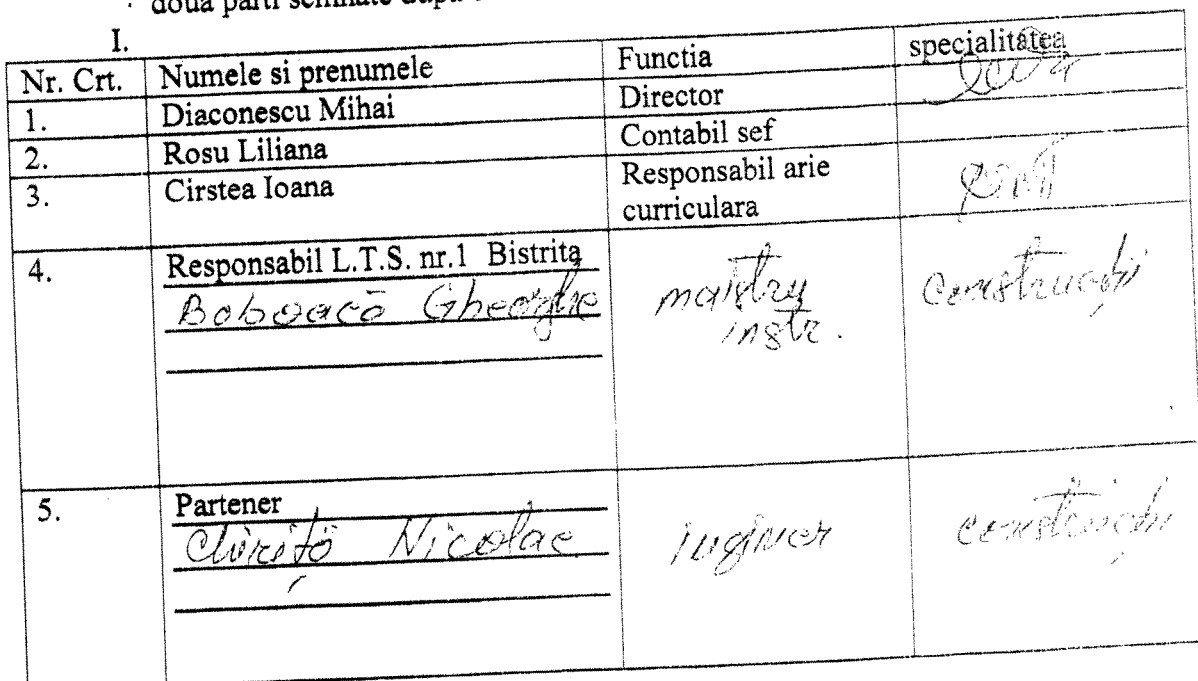 două parti semnate după
I.
Nr. Crt. Numele si prenumele Functia specialitatea
1. Diaconescu Mihai Director
2. Rosu Liliana Contabil sef
3. Cirstea Ioana Responsabil arie
curriculara
4. Responsabil L.T.S. nr.1 Bistrita
Boboacă Gheorghe maistru construcții
instr.
5. Partener
Chiriță Nicolae inginer construcții